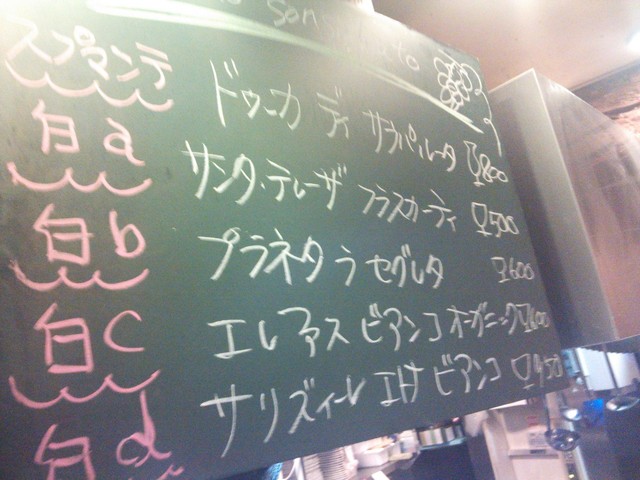 スプマンテ ドゥーカ ディ サラパルータ 800
白a サンタ・テレーザ フラスカーティ 500
白b プラネタ ラ セグレタ 600
白c エレアス ビアンコ オーガニック 600
白d サリズィーレ ビアンコ